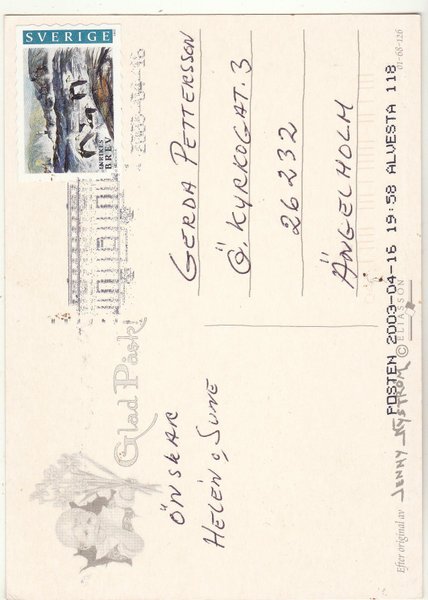 SVERIGE
INRIKES
BREV
2003-04-16
Glad Påsk!
ÖNSKAR
HELÉN o SUNE
GERDA PETTERSSON
Ö. KYRKOGAT. 3
26232
ÄNGELHOLM
Efter original av JENNY NYSTRÖM © ELIASSON
01-68-126
POSTEN 2003-04-16 19:58 ALVESTA 118